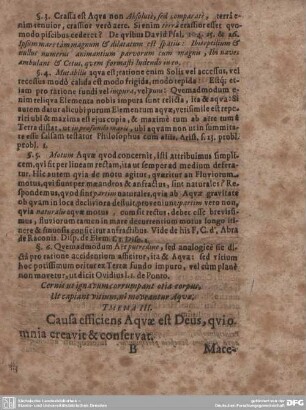 §. 3. Crassa est Aqva non Absolutè, sed comparatè, terrâ e-
nim tenuior, crassior verò aëre. Si enim terrâ crassior esset quo-
modo piscibus cederet? De qvibus David Psal. 104. 25. & 26.
Ipsum mare tam magnum & dilatatum est spatiis: Ibi reptilium &
nullus numerus animantium parvarum cum magnis, Ibi naves
ambulant & Cetus, qvem formasti ludendi in eo.
§. 4. Mutabilis aqva est; ratione enim Solis vel accessus, vel
recessus modò calida est modò frigida, modò tepida: Estq; et-
iam pro ratione fundi vel impura vel pura: Quemadmodum e-
nim reliqva Elementa nobis impura sunt relicta, ita & aqva: si
autem datur alicubi purum Elementum aqvæ, verisimile est repe-
riri ubi & maxima est ejus copia, & maximè tum ab aëre tum à
Terra distat, ut in profundo maris, ubi aqvam non ut in summita-
te esse salsam testatur Philosophus cum aliis, Arist. s. 23. probl.
probl.
§. 5. Motum Aquæ quod concernit, isti attribuimus simpli-
cem, qvi fit per lineam rectam, ita ut semper ad medium defera-
tur. Hîc autem qvia de motu agitur, qværitur an Fluviorum
motus, qvi fiunt per mæandros & anfractus, sint naturales? Re-
spondemus, qvod sint partim naturales, qvia ab Aqvæ gravitate
ob qvam in loca decliviora defluit, proveniunt; partim verò non,
qvia naturalis aqvæ motus, omnis est rectus, debet esse brevissi-
mus, fluviorum tamen in mare decurrentium motus longo itine-
re & sinuosis conficitur anfractibus. Vide de his F, C. d' Abra
de Raconis. Disp. de Elem. Ex Disp. 2.
§. 6. Qvemadmodum Aër purredine, sed analogicè sic di-
cta pro ratione accidentium afficitur, ita & Aqva: sed vitium
hoc potissimum oritur ex Terræ fundo impuro, vel cùm planè
non movetur, ut dicit Ovidius l. 1. de Ponto.
Cernis ut ignavum corrumpant otia corpus,
Ut capiant vitium, ni moveantur Aqvæ,
THEMA III.
Causa efficiens Aqvæ est Deus, qvi o-
mnia creavit & conservat.
B Mace-